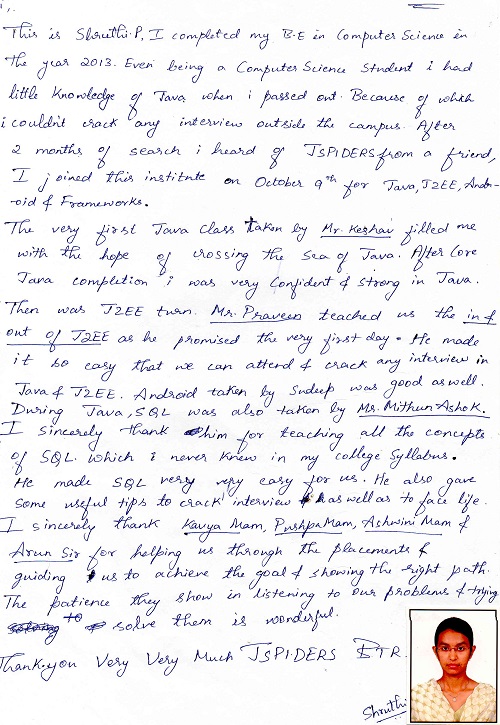 This is Shruthi.P, I completed my B.E in Computer Science in
the year 2013. Even being a Computer Science Student i had
little knowledge of Java, when i passed out. Because of which
i couldn't crack any interview outside the campus. After
2 months of search i heard of JSPIDERS from a friend,
I joined this institute on October 9th for Java, J2EE, Andr-
-oid & Frameworks.
The very first Java Class taken by Mr. Keshav filled me
with the hope of crossing the Sea of Java. After Core
Java completion i was very Confident & strong in Java.
Then was J2EE turn. Mr. Praveen teached us the in &
out of J2EE as he promised the very first day. He made
it so easy that we can attend & crack any interview in
Java & J2EE. Android taken by Sudeep was good as well.
During Java, SQL was also taken by Mr. Mithun Ashok.
I sincerely thank him for teaching all the concepts
of SQL. which i never knew in my college Syllabus.
He made SQL very very easy for us. He also gave
some useful tips to crack interview as well as to face life.
I sincerely thank Kavya Mam, Pushpa Mam, Ashwini Mam &
Arun Sir for helping us through the placements &
guiding us to achieve the goal & showing the right path.
The patience they show in listening to our problems & trying
to solve them is wonderful.
Thank you Very Very Much JSPIDERS BTR.
Shruthi